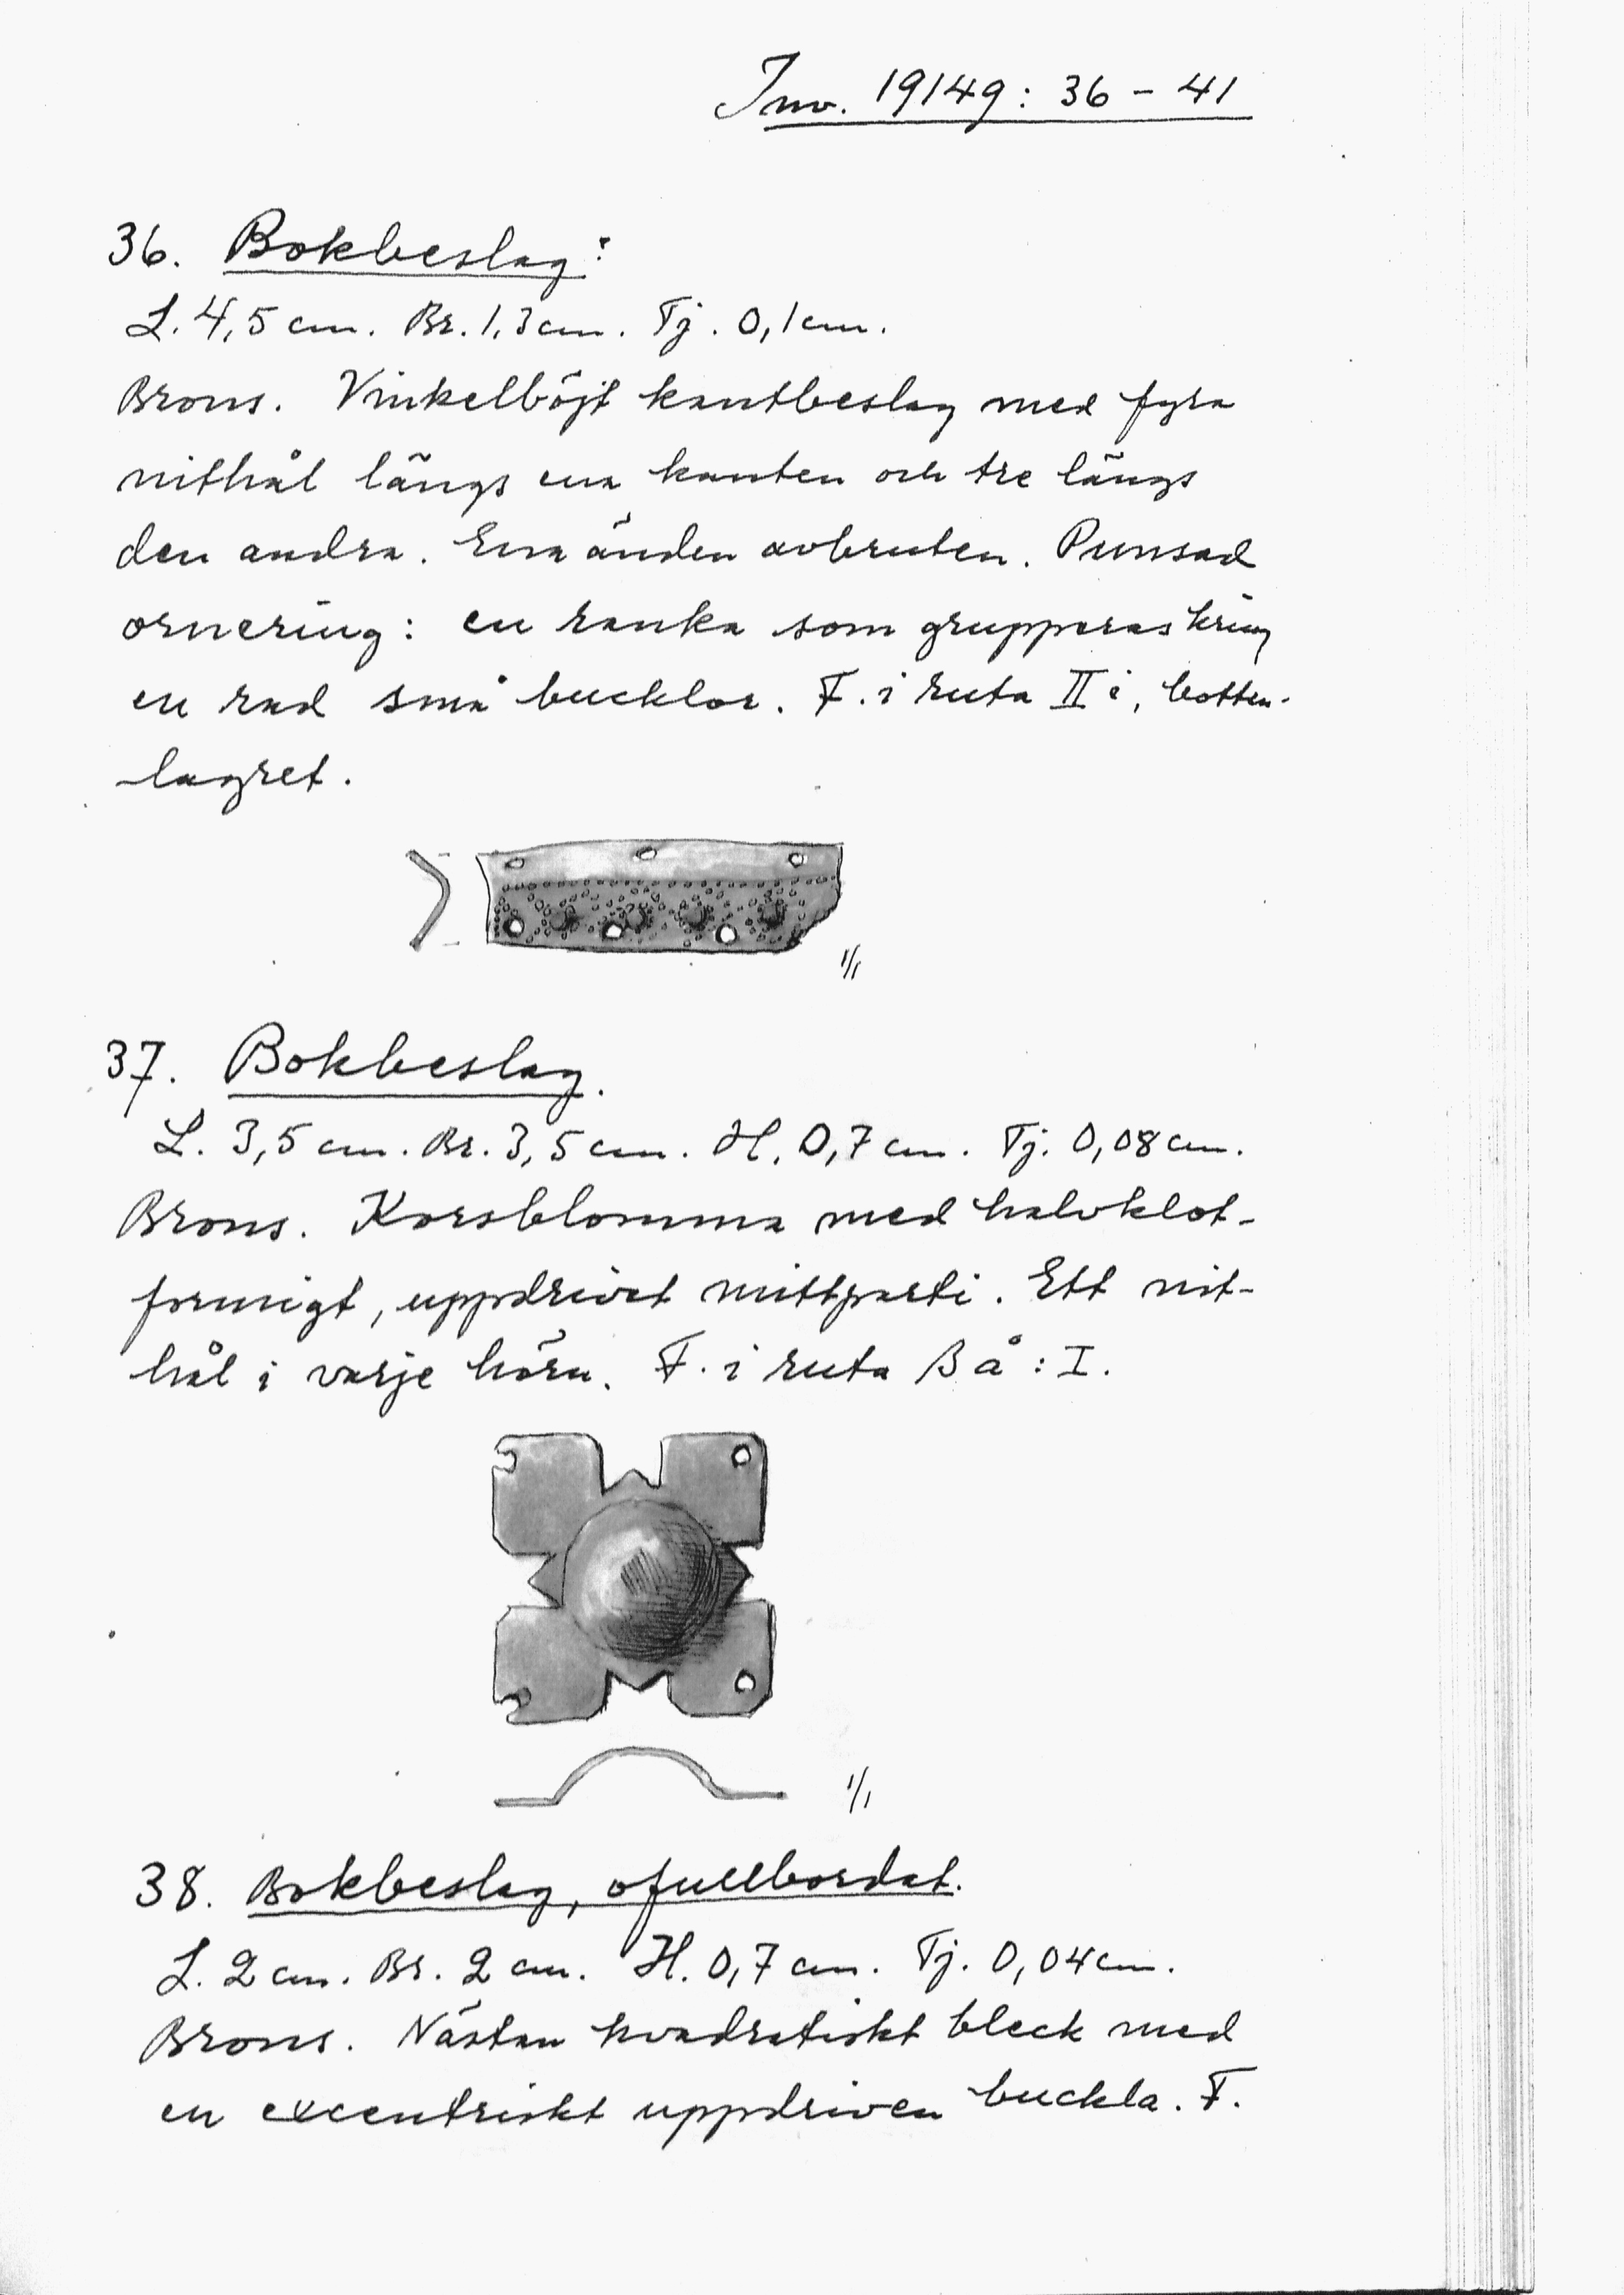 Inv. 19149: 36 – 41
36. Bokbeslag:
L. 4,5 cm. Br. 1,3 cm. Tj. 0,1 cm.
Brons. Vinkelböjt kantbeslag med fyra
nithål längs ena kanten och tre längs
den andra. Ena änden avbruten. Punsad
ornering: en ranka som grupperas kring
en rad små bucklor. F. i ruta II i, botten-
lagret.
1/1
37. Bokbeslag.
L. 3,5 cm. Br. 3,5 cm. H. 0,7 cm. Tj. 0,08 cm.
Brons. Korsblomma med halvklot-
formigt, uppdrivet mittparti. Ett nit-
hål i varje hörn. F. i ruta B å : I.
1/1
38. Bokbeslag, ofullbordat.
L. 2 cm. Br. 2 cm. H. 0,7 cm. Tj. 0,04 cm.
Brons. Nästan kvadratiskt bleck med
en excentriskt uppdriven buckla. F.